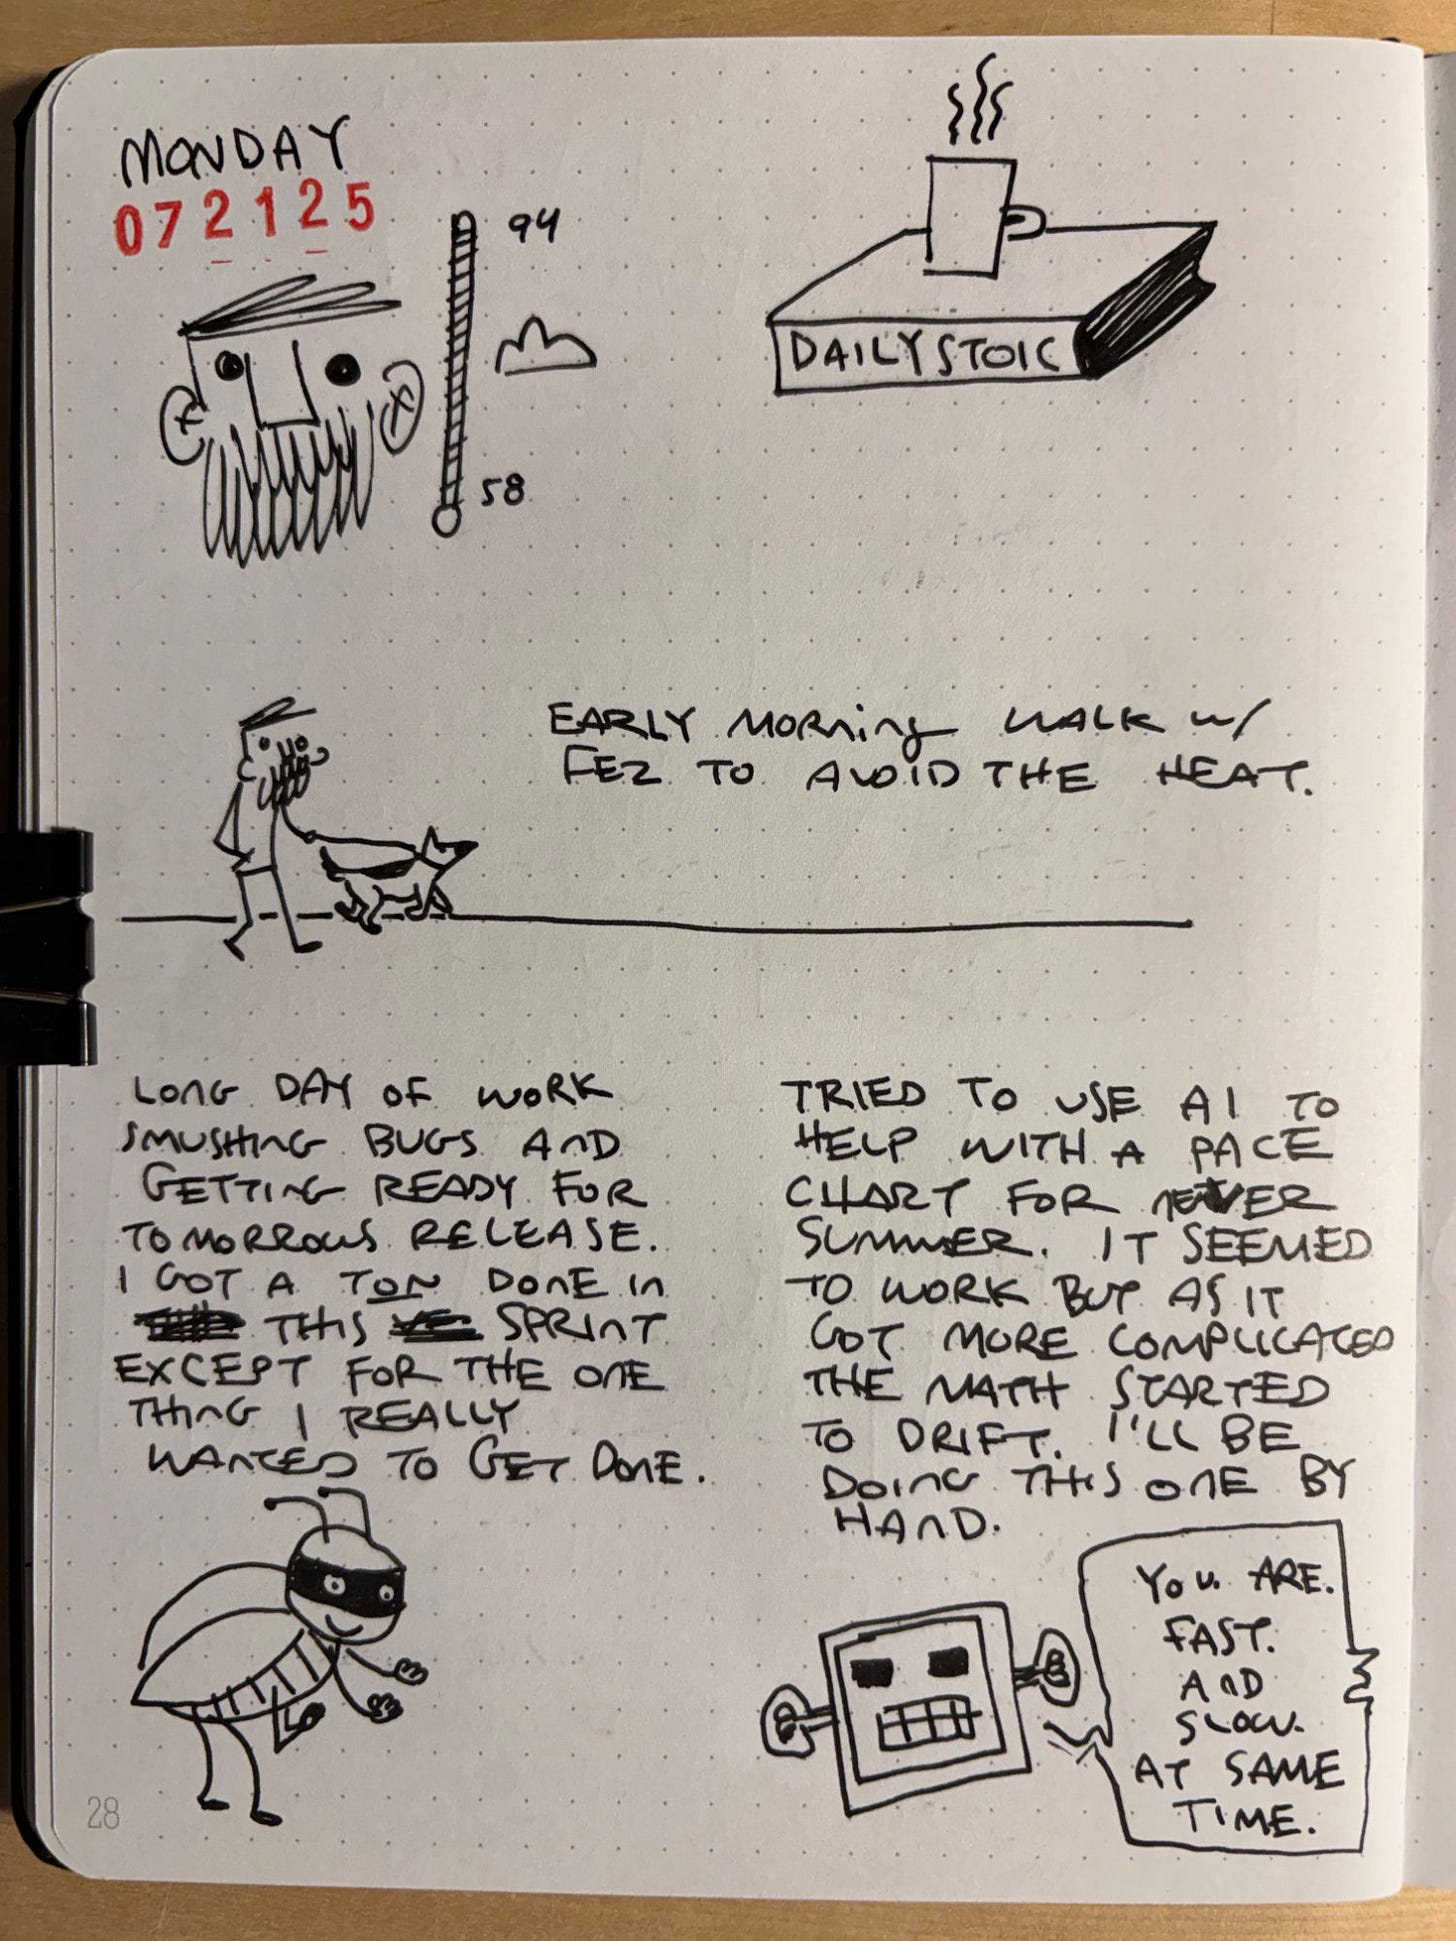 MONDAY
072125
94
58
DAILY STOIC
EARLY MORNING WALK W/
FEZ TO AVOID THE HEAT.
LONG DAY OF WORK
SMUSHING BUGS AND
GETTING READY FOR
TOMORROWS RELEASE.
I GOT A TON DONE IN
THIS SPRINT
EXCEPT FOR THE ONE
THING I REALLY
WANTED TO GET DONE.
TRIED TO USE AI TO
HELP WITH A PACE
CHART FOR NEVER
SUMMER. IT SEEMED
TO WORK BUT AS IT
GOT MORE COMPLICATED
THE MATH STARTED
TO DRIFT. I'LL BE
DOING THIS ONE BY
HAND.
YOU. ARE.
FAST.
AND
SLOW.
AT SAME
TIME.
28